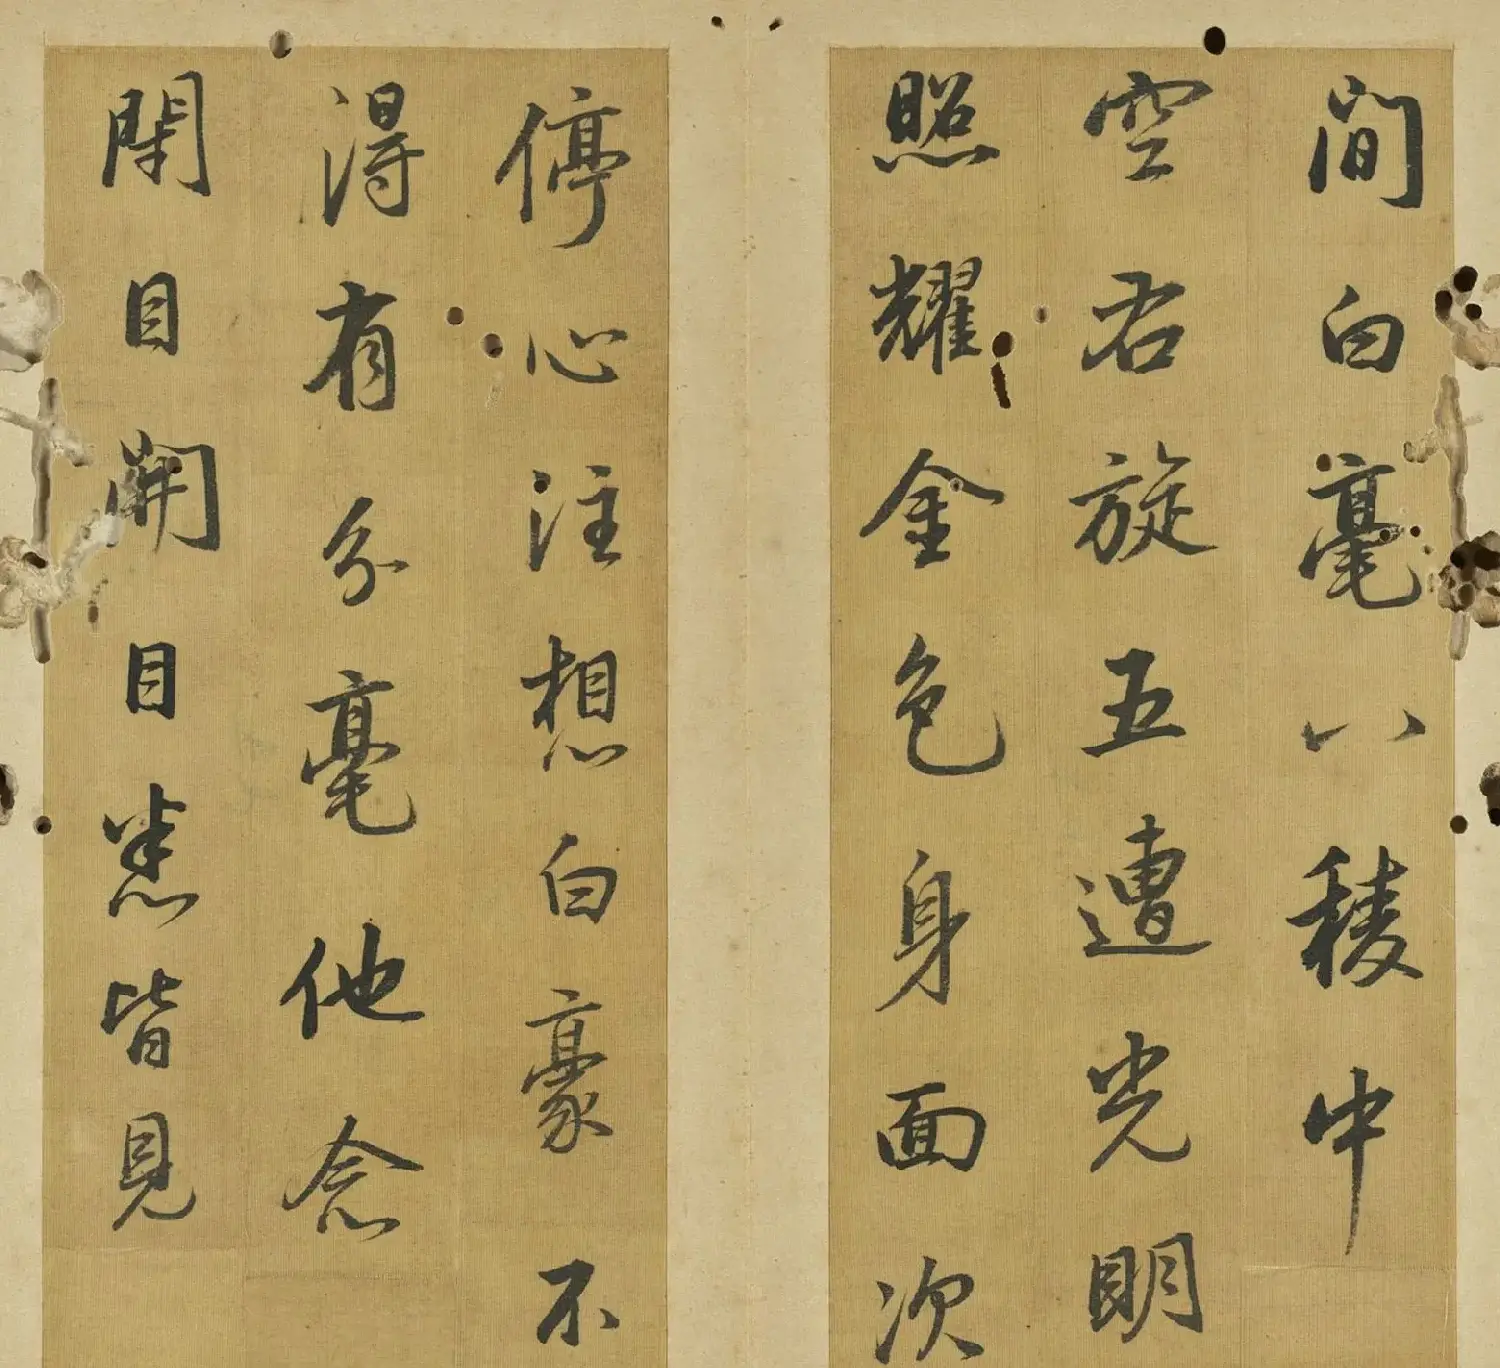 間白毫八稜中
空右旋五遭光明
照耀金色身面次
停心注想白豪不
得有分毫他念
閉目開目悉皆見